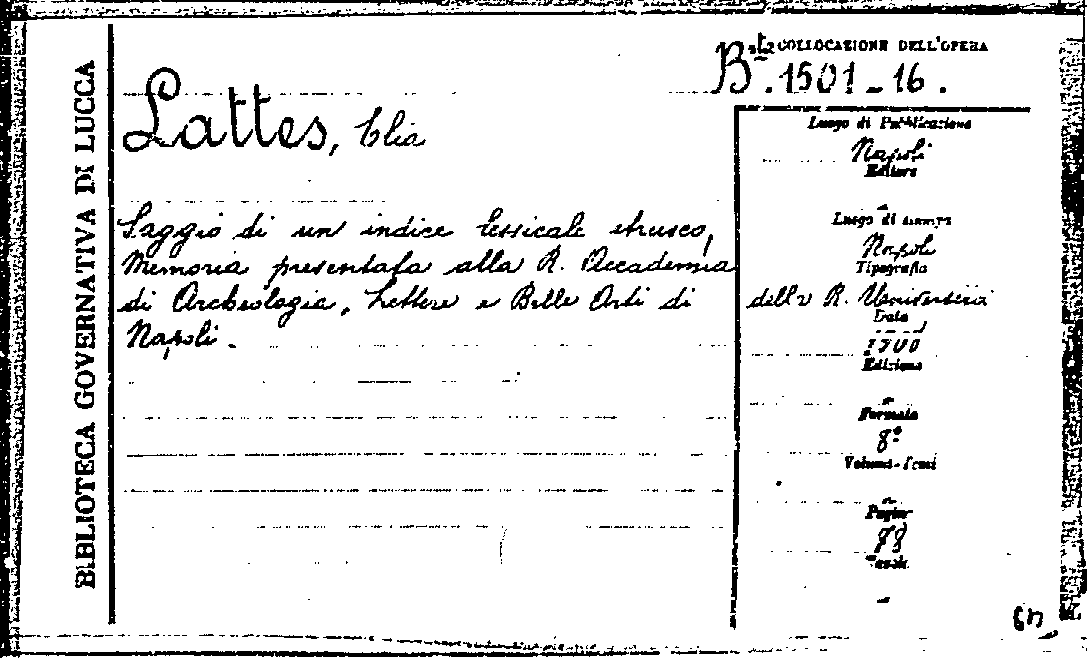 BIBLIOTECA GOVERNATIVA DI LUCCA
COLLOCAZIONE DELL'OPERA
Bta. 1501-16.
Lattes, Elia
Saggio di un indice lessicale etrusco,
Memoria presentata alla R. Accademia
di Archeologia, Lettere e Belle Arti di
Napoli.
Luogo di Pubblicazione
Napoli
Editore
-
Luogo di stampa
Napoli
Tipografia
della R. Università
Data
1900
Edizione
-
Formato
8º
Volumi-Tomi
-
Pagine
Tavole
-